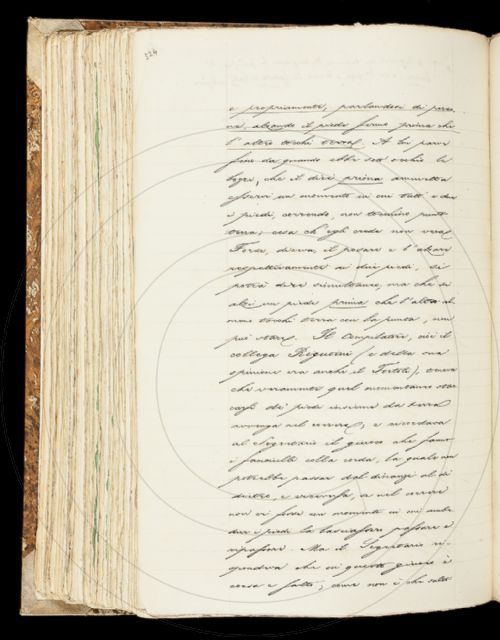 324
e propriamente, parlandosi di perso
na, alzando il piede fermo prima che
l'altro tocchi terra. A lui parve
fin da quando ebbe sott'occhio la
bozza, che il dire prima ammetta
esservi un momento in cui tutt'e due
i piedi, correndo, non tocchino punto
terra; cosa ch'egli crede non vera.
Forse, diceva, il posare e l'alzare
rispettivamente ai due piedi, si
potrà dire simultaneo, ma che si
alzi un piede prima che l'altro al-
meno tocchi terra con la punta, non
può stare. Il Compilatore, cioè il
collega Rigutini (e della sua
opinione era anche il Tortoli), teneva
che veramente quel momentaneo stac
carsi dei piedi insieme da terra
avvenga nel correre, e ricordava
al Segretario il giuoco che fanno
i fanciulli colla corda, la quale non
potrebbe passare dal dinanzi al di
dietro, e viceversa, se nel correre
non vi fosse un momento in cui ambe
due i piedi la lasciassero passare e
ripassare. Ma il Segretario ri-
spondeva che in questo giuoco è
corsa e salto; dove non è che salto